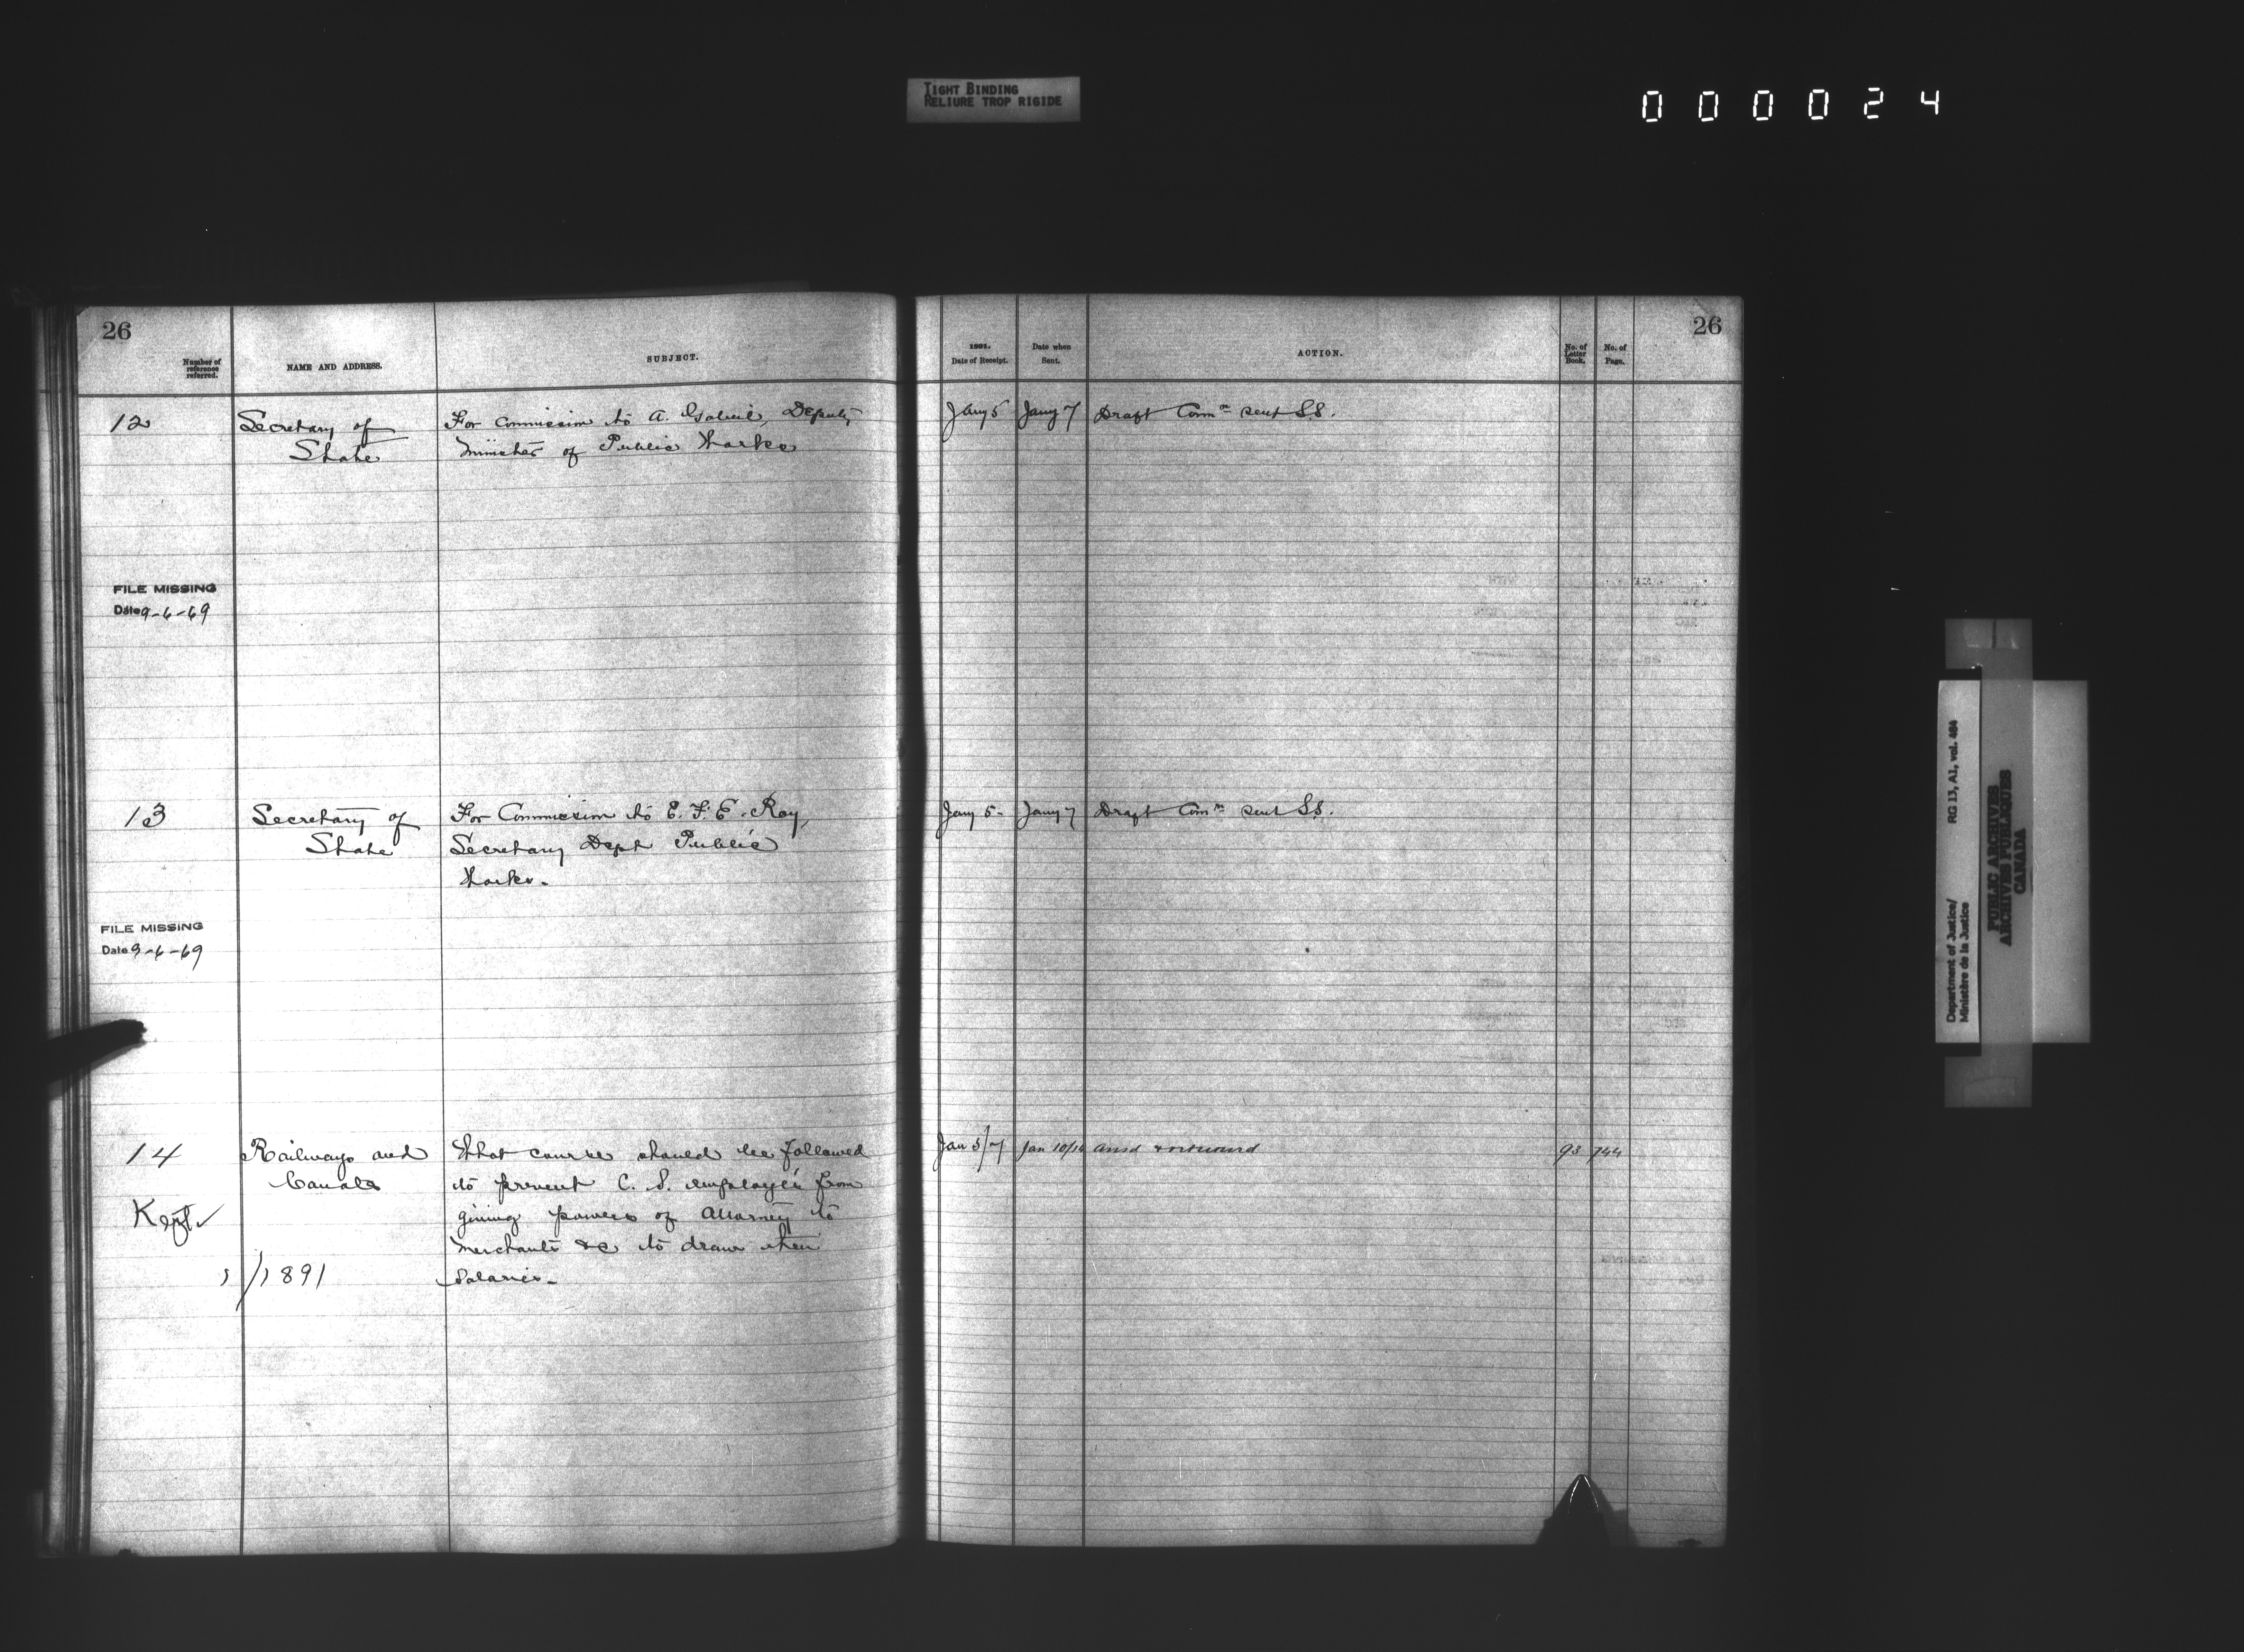 TIGHT BINDING
RELIURE TROP RIGIDE
000024
26
Number of
reference
referred.
NAME AND ADDRESS.
SUBJECT.
12
Secretary of
State
For Commission to A. Gobeil, Deputy
Minister of Public Works
FILE MISSING
Date 9-6-69
13
Secretary of
State
For Commission to E. F. E. Roy,
Secretary Dept Public
Works.
FILE MISSING
Date 9-6-69
14
Railways and
Canals
Kept ✓
1/1891
What course should be followed
to prevent C. S. employés from
giving powers of Attorney to
merchants &c to draw their
Salaries.
26
1891.
Date of Receipt.
Date when
Sent.
ACTION.
No. of
Letter
Book.
No. of
Page.
Jany 5
Jany 7
Draft Comn sent S.S.
Jany 5.
Jany 7
Draft Comn sent S.S.
Jan 5/7
Jan 10/14
Ansd
93
744
Department of Justice/
Ministère de la Justice
RG 13, A1, vol. 484
PUBLIC ARCHIVES
ARCHIVES PUBLIQUES
CANADA